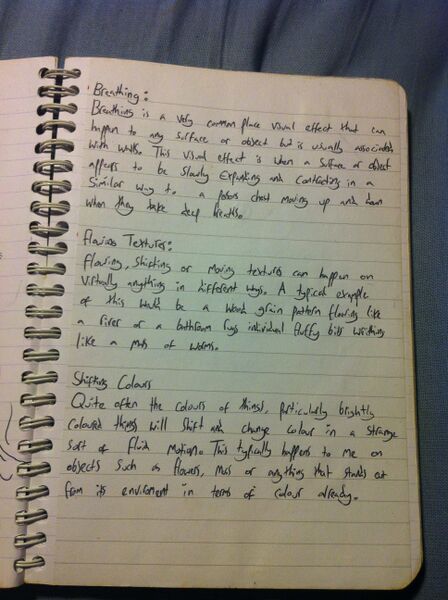 Breathing:
Breathing is a very common place visual effect that can
happen to any surface or object but is usually associated
with walls. This visual effect is when a surface or object
appears to be slowly Expanding and contracting in a
similar way to a persons chest moving up and down
when they take deep breaths.
Flowing Textures:
Flowing, shifting or moving textures can happen on
virtually anything in different ways. A typical example
of this would be a wood grain pattern flowing like
a river or a bathroom rugs individual fluffy bits writhing
like a mass of worms.
Shifting Colours
Quite often the colours of things, particularly brightly
coloured things will shift and change colour in a strange
sort of fluid motion. This typically happens to me on
objects such as flowers, or anything that stands out
from its enviroment in terms of colour already.